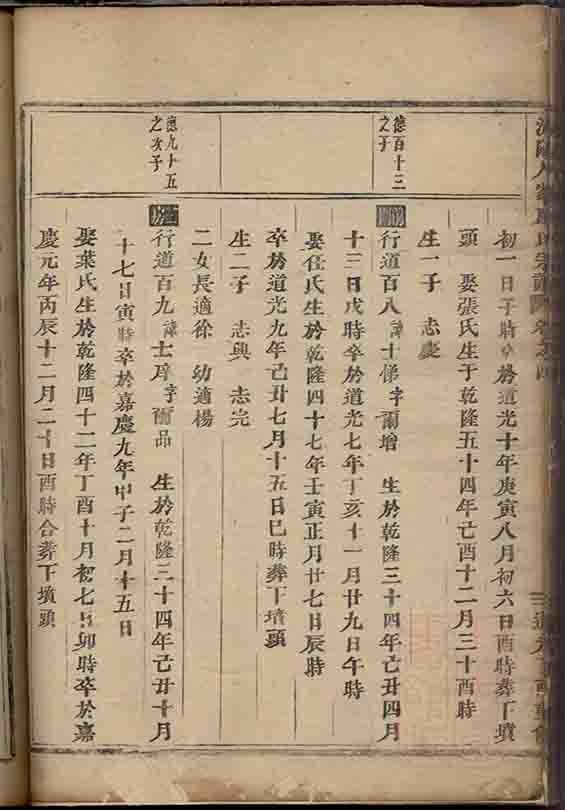 初一日子時卒於道光十年庚寅八月初六日酉時葬下墳
頭　娶張氏生于乾隆五十四年己酉十二月三十酉時
生一子　志慶
德百十三
之子
行道百八　諱士悌　字爾增　生於乾隆三十四年己丑四月
十三日戌時卒於道光七年丁亥十一月廿九日午時
娶任氏生於乾隆四十七年壬寅正月廿七日辰時
卒於道光九年己丑七月十五日巳時葬下墳頭
生二子　志興　志完
二女長適徐　幼適楊
德九十五
之次子
行道百九　諱士　字爾品　生於乾隆三十四年己丑十月
十七日寅時卒於嘉慶九年甲子二月十五日
娶葉氏生於乾隆四十二年丁酉十月初七日卯時卒於嘉
慶元年丙辰十二月二十日酉時合葬下墳頭